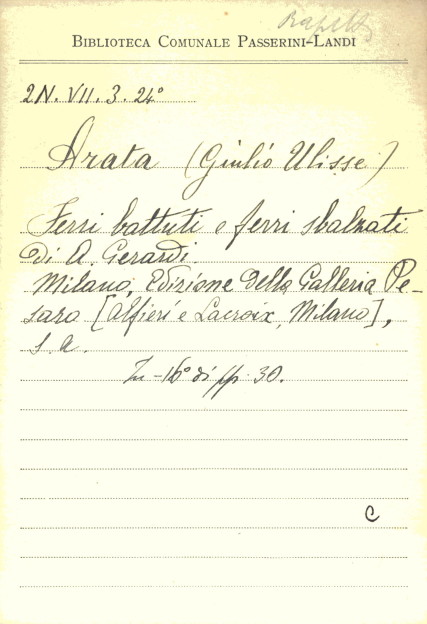 BIBLIOTECA COMUNALE PASSERINI-LANDI
2N. VII. 3. 24°
Arata (Giulio Ulisse)
Ferri battuti e ferri sbalzati
di A. Gerardi.
Milano, Edizione della Galleria Pe-
saro [Alfieri e Lacroix, Milano],
s. a.
In-16° di pp. 30.
C